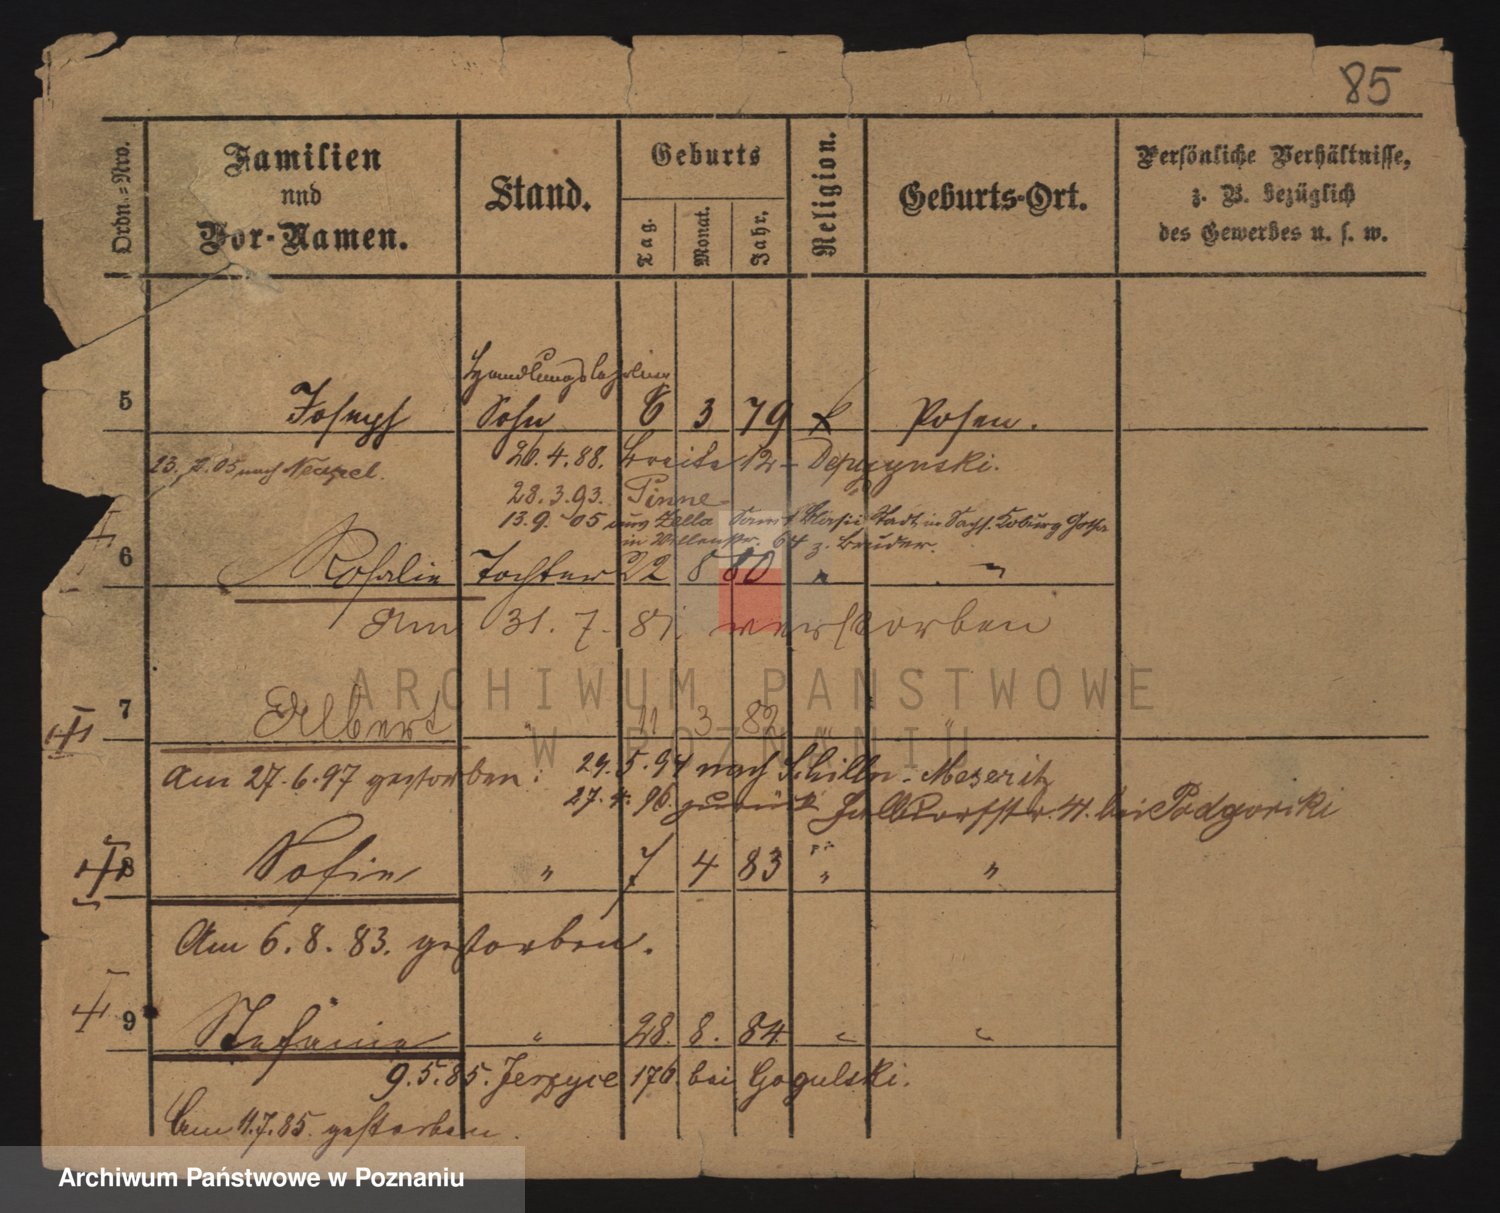 85
Ordn.=Nro.
Familien
und
Vor-Namen.
Stand.
Geburts
Tag.
Monat.
Jahr.
Religion.
Geburts-Ort.
Persönliche Verhältnisse,
z. B. bezüglich
des Gewerbes u. s. w.
Handlungslehrling
5 Joseph Sohn 6 3 79 k Posen.
26.4.88. Breite 12 -
13. 7. 05 nach
28.3.93. Pinne
13.9.05 aus Zella Sanct Blasii, Stadt in Sachs. Koburg Gotha
64 z. Bruder.
6 Rosalie Tochter 22 8 80 " "
Am 31. 7. 81. verstorben
7 Albert " 11 3 82 "
Am 27.6.97 gestorben. 29.5.94 nach Meseritz
27.4.96 zurück Halldorfstr. bei Podgorski
8 Sofie " 7 4 83 " "
Am 6. 8. 83. gestorben.
9 Stefanie " 28. 8. 84 " "
9.5.85. Jerzyce 176 bei Gogulski.
Am 11.7.85. gestorben.
ARCHIWUM PAŃSTWOWE
W POZNANIU
Archiwum Państwowe w Poznaniu